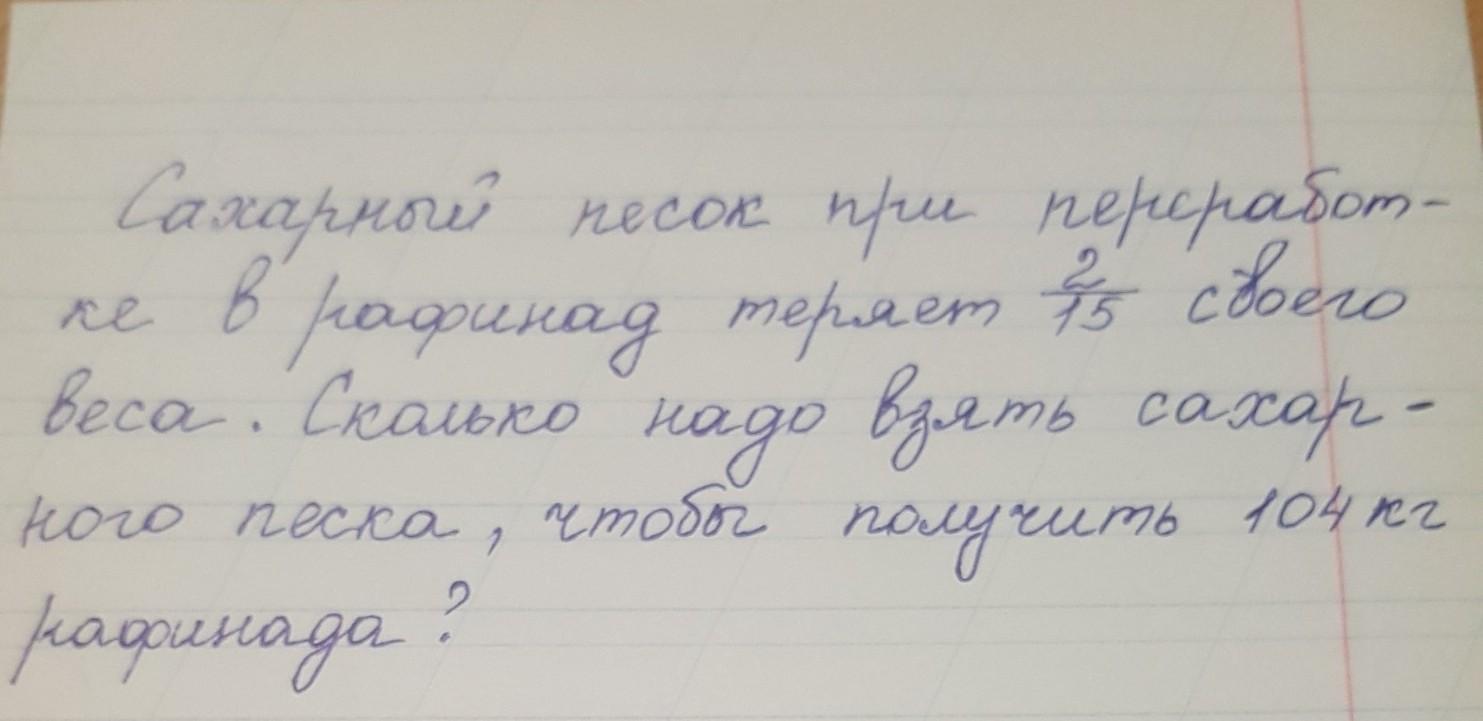 Сахарный песок при переработ-
ке в рафинад теряет 2/15 своего
веса. Сколько надо взять сахар-
ного песка, чтобы получить 104 кг
рафинада?